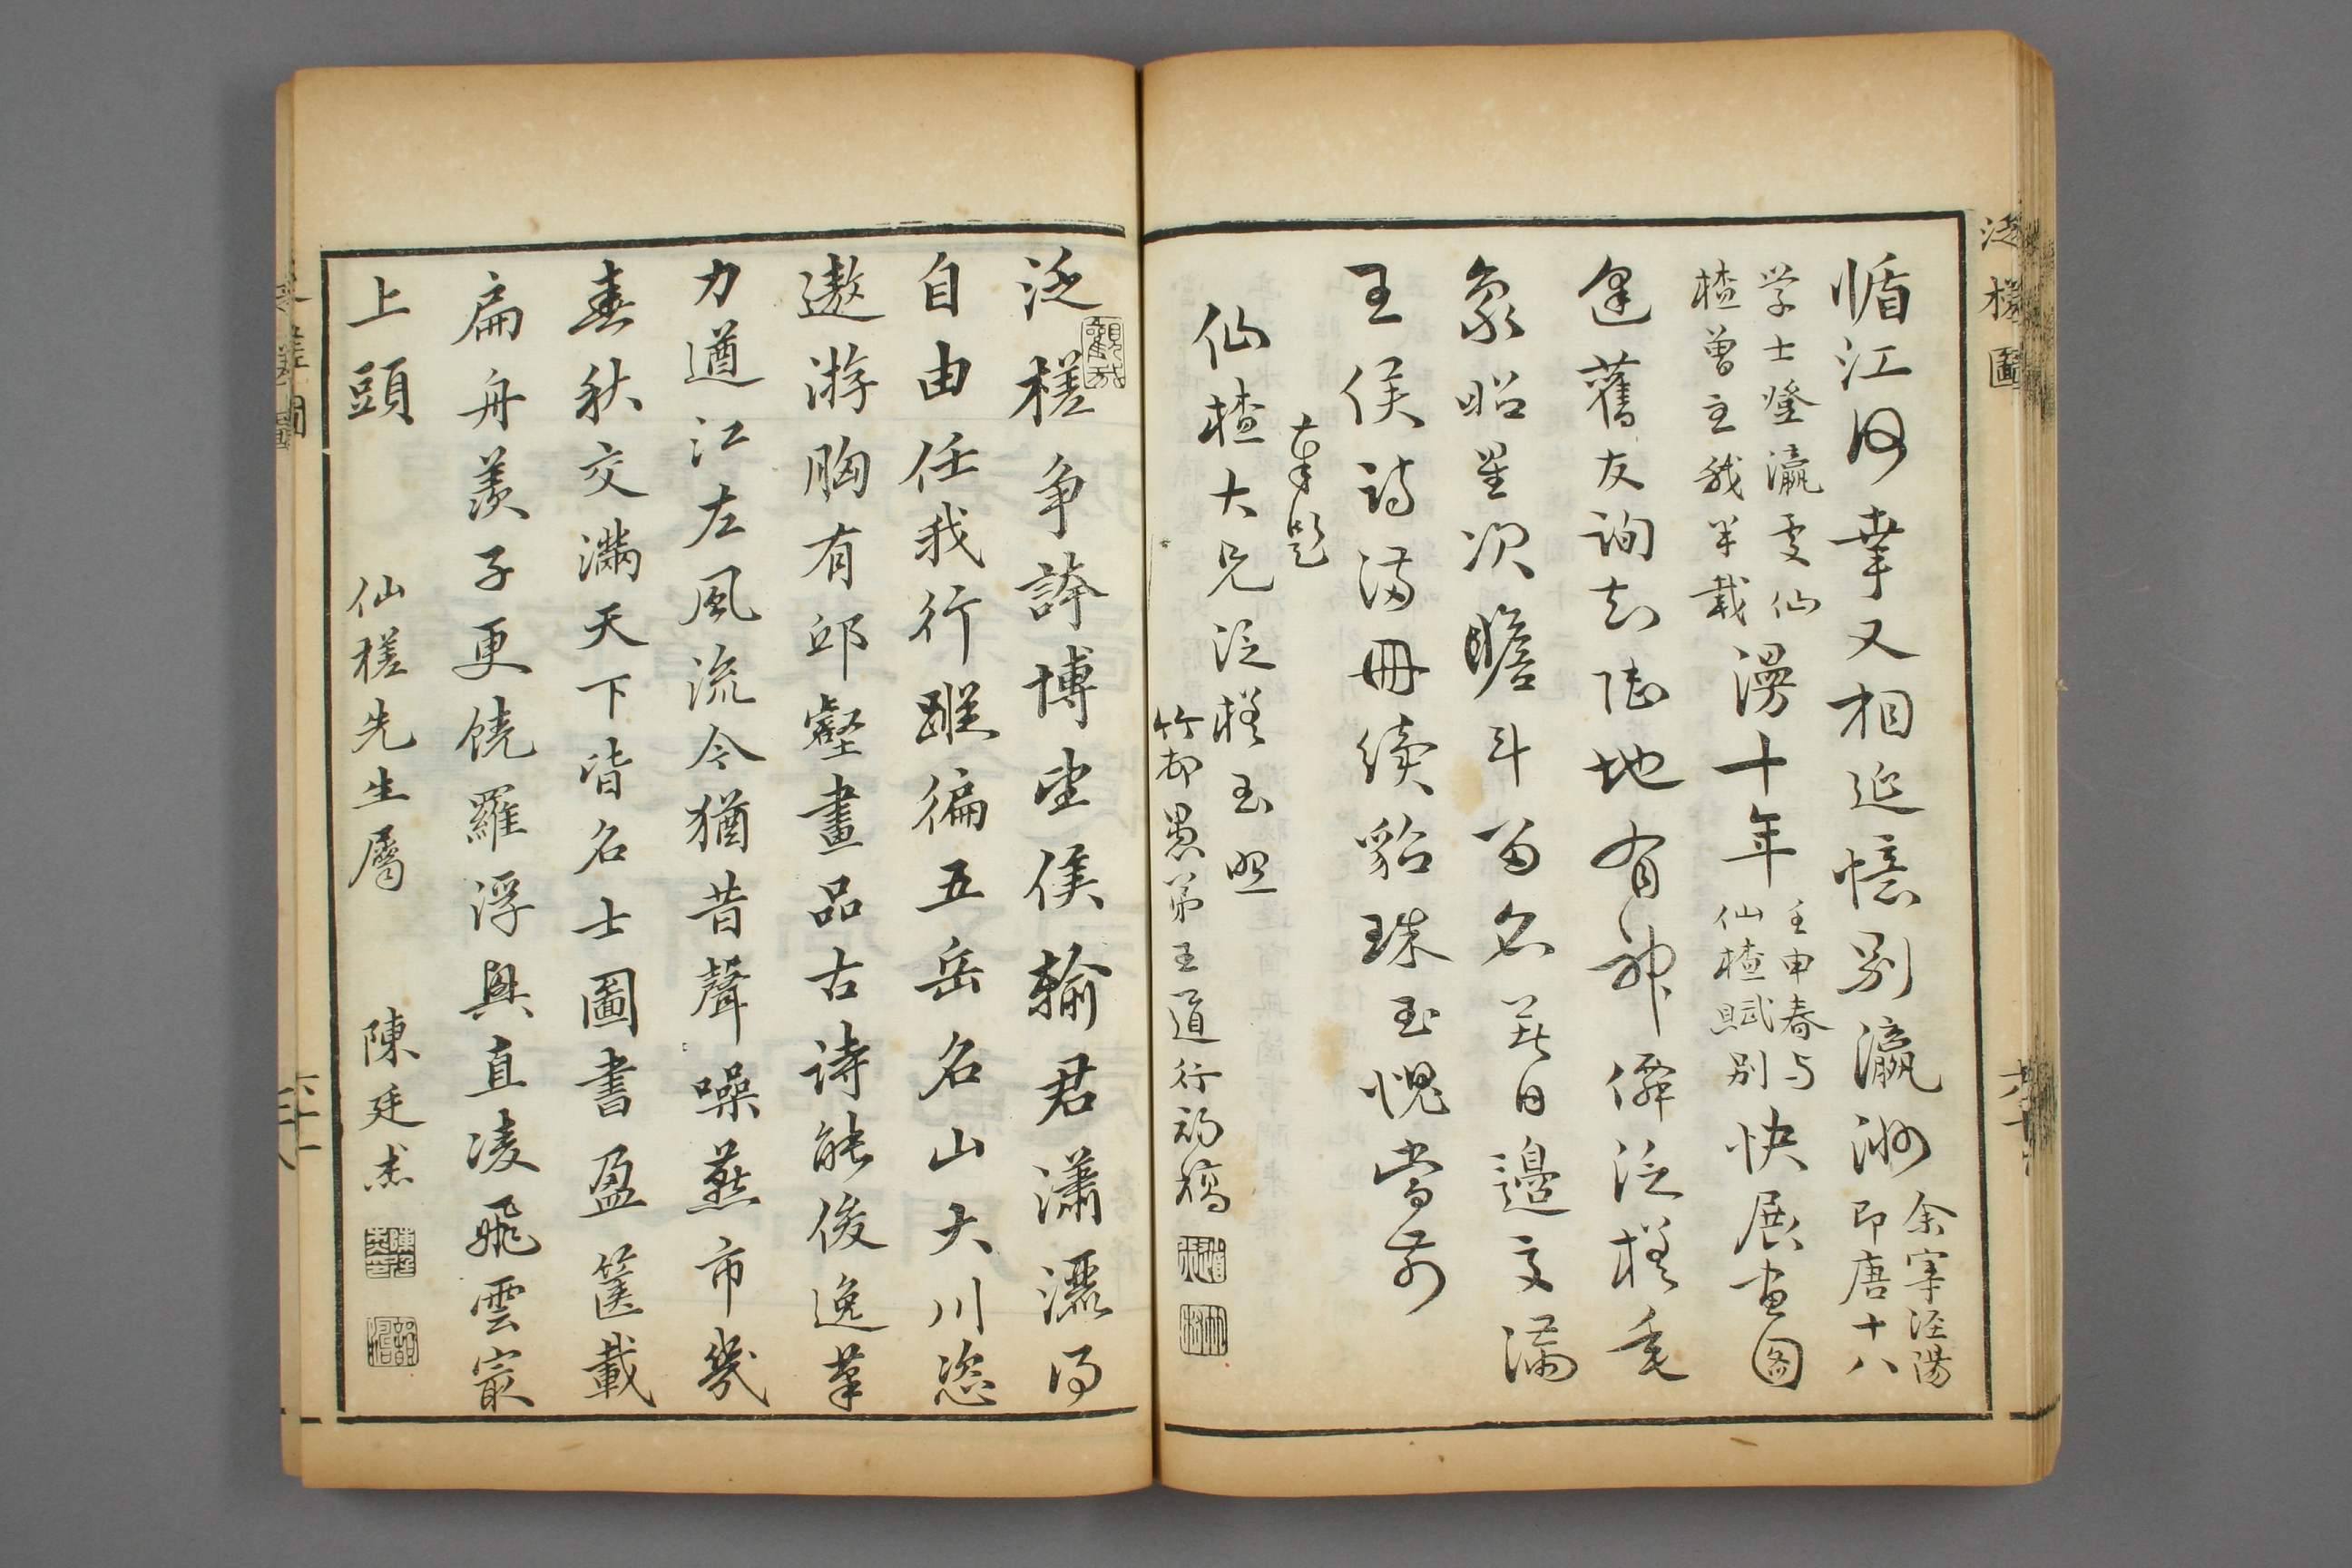 泛槎圖
循江河幸又相延憶别瀛洲余宰涇陽
即唐十八
学士登瀛雯仙
槎曾主我半載漫十年壬申春与
仙槎賦别快展画图
逢舊友詢知陸地有神僊泛槎
象昭星次瞻斗名日邊文满
王侯詩满冊續貂珠玉愧當前
奉題
仙槎大兄泛槎玉照
竹邨愚弟王道行初稿
泛槎争誇博望侯輸君瀟灑得
自由任我行蹤徧五岳名山大川恣
遨游胸有邱壑畫品古詩能俊逸筆
力遒江左風流今猶昔聲噪燕市幾
春秋交滿天下皆名士圖書盈篋載
扁舟羨子更饒羅浮興直凌飛雲最
上頭
仙槎先生属
陳廷杰